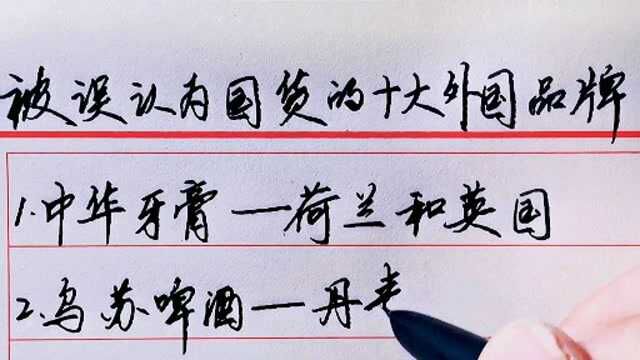 被误认为国货的十大外国品牌
1.中华牙膏—荷兰和英国
2.乌苏啤酒—丹麦